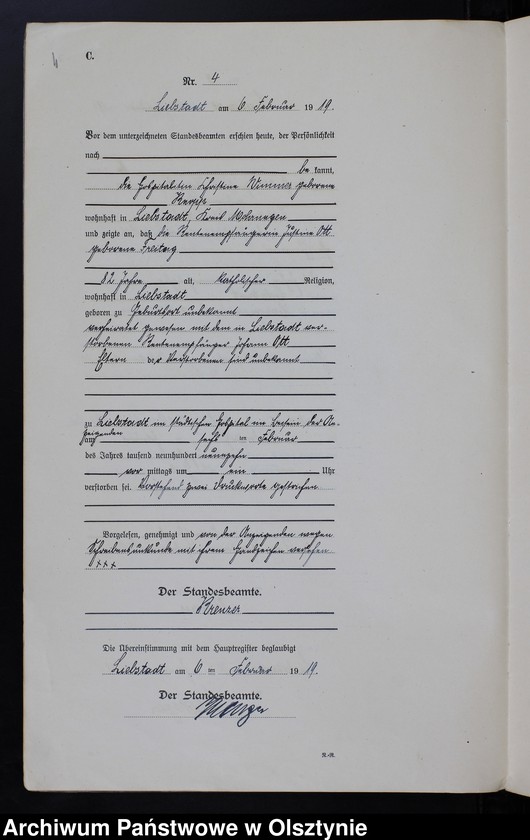 4
C.
Nr. 4
Liebstadt am 6 Februar 1919.
Vor dem unterzeichneten Standesbeamten erschien heute, der Persönlichkeit
nach
be kannt,
die Hospalitin Christine Wimmer geborene
wohnhaft in Liebstadt, Kreis Mohrungen
und zeigte an, daß die Rentenempfängerin Justine Ott
geborene Freitag
82 Jahre alt, katholischer Religion,
wohnhaft in Liebstadt
geboren zu Geburtsort unbekannt
verheiratet gewesen mit dem in Liebstadt ver-
storbenen Rentenempfänger Johann Ott
Eltern der Verstorbenen sind unbekannt
zu Liebstadt im städtischen Hospital im Beisein der An-
zeigenden
am sechs ten Februar
des Jahres tausend neunhundert neunzehn
vor mittags um ein Uhr
verstorben sei. Vorstehend zwei Druckworte gestrichen
Vorgelesen, genehmigt und von der Anzeigenden wegen
Schreibensunkunde mit ihrem Handzeichen versehen
+++
Der Standesbeamte.
Krenzer
Die Übereinstimmung mit dem Hauptregister beglaubigt
Liebstadt am 6 ten Februar 1919.
Der Standesbeamte.
R.-R.
Archiwum Państwowe w Olsztynie